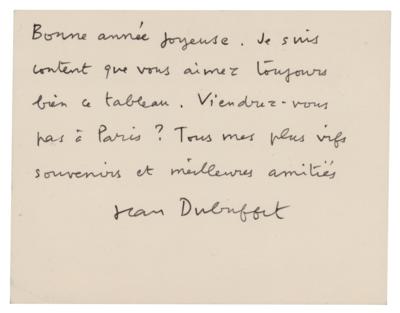 Bonne année joyeuse. Je suis
content que vous aimez toujours
bien ce tableau. Viendrez-vous
pas à Paris ? Tous mes plus vifs
souvenirs et meilleures amitiés
Jean Dubuffet